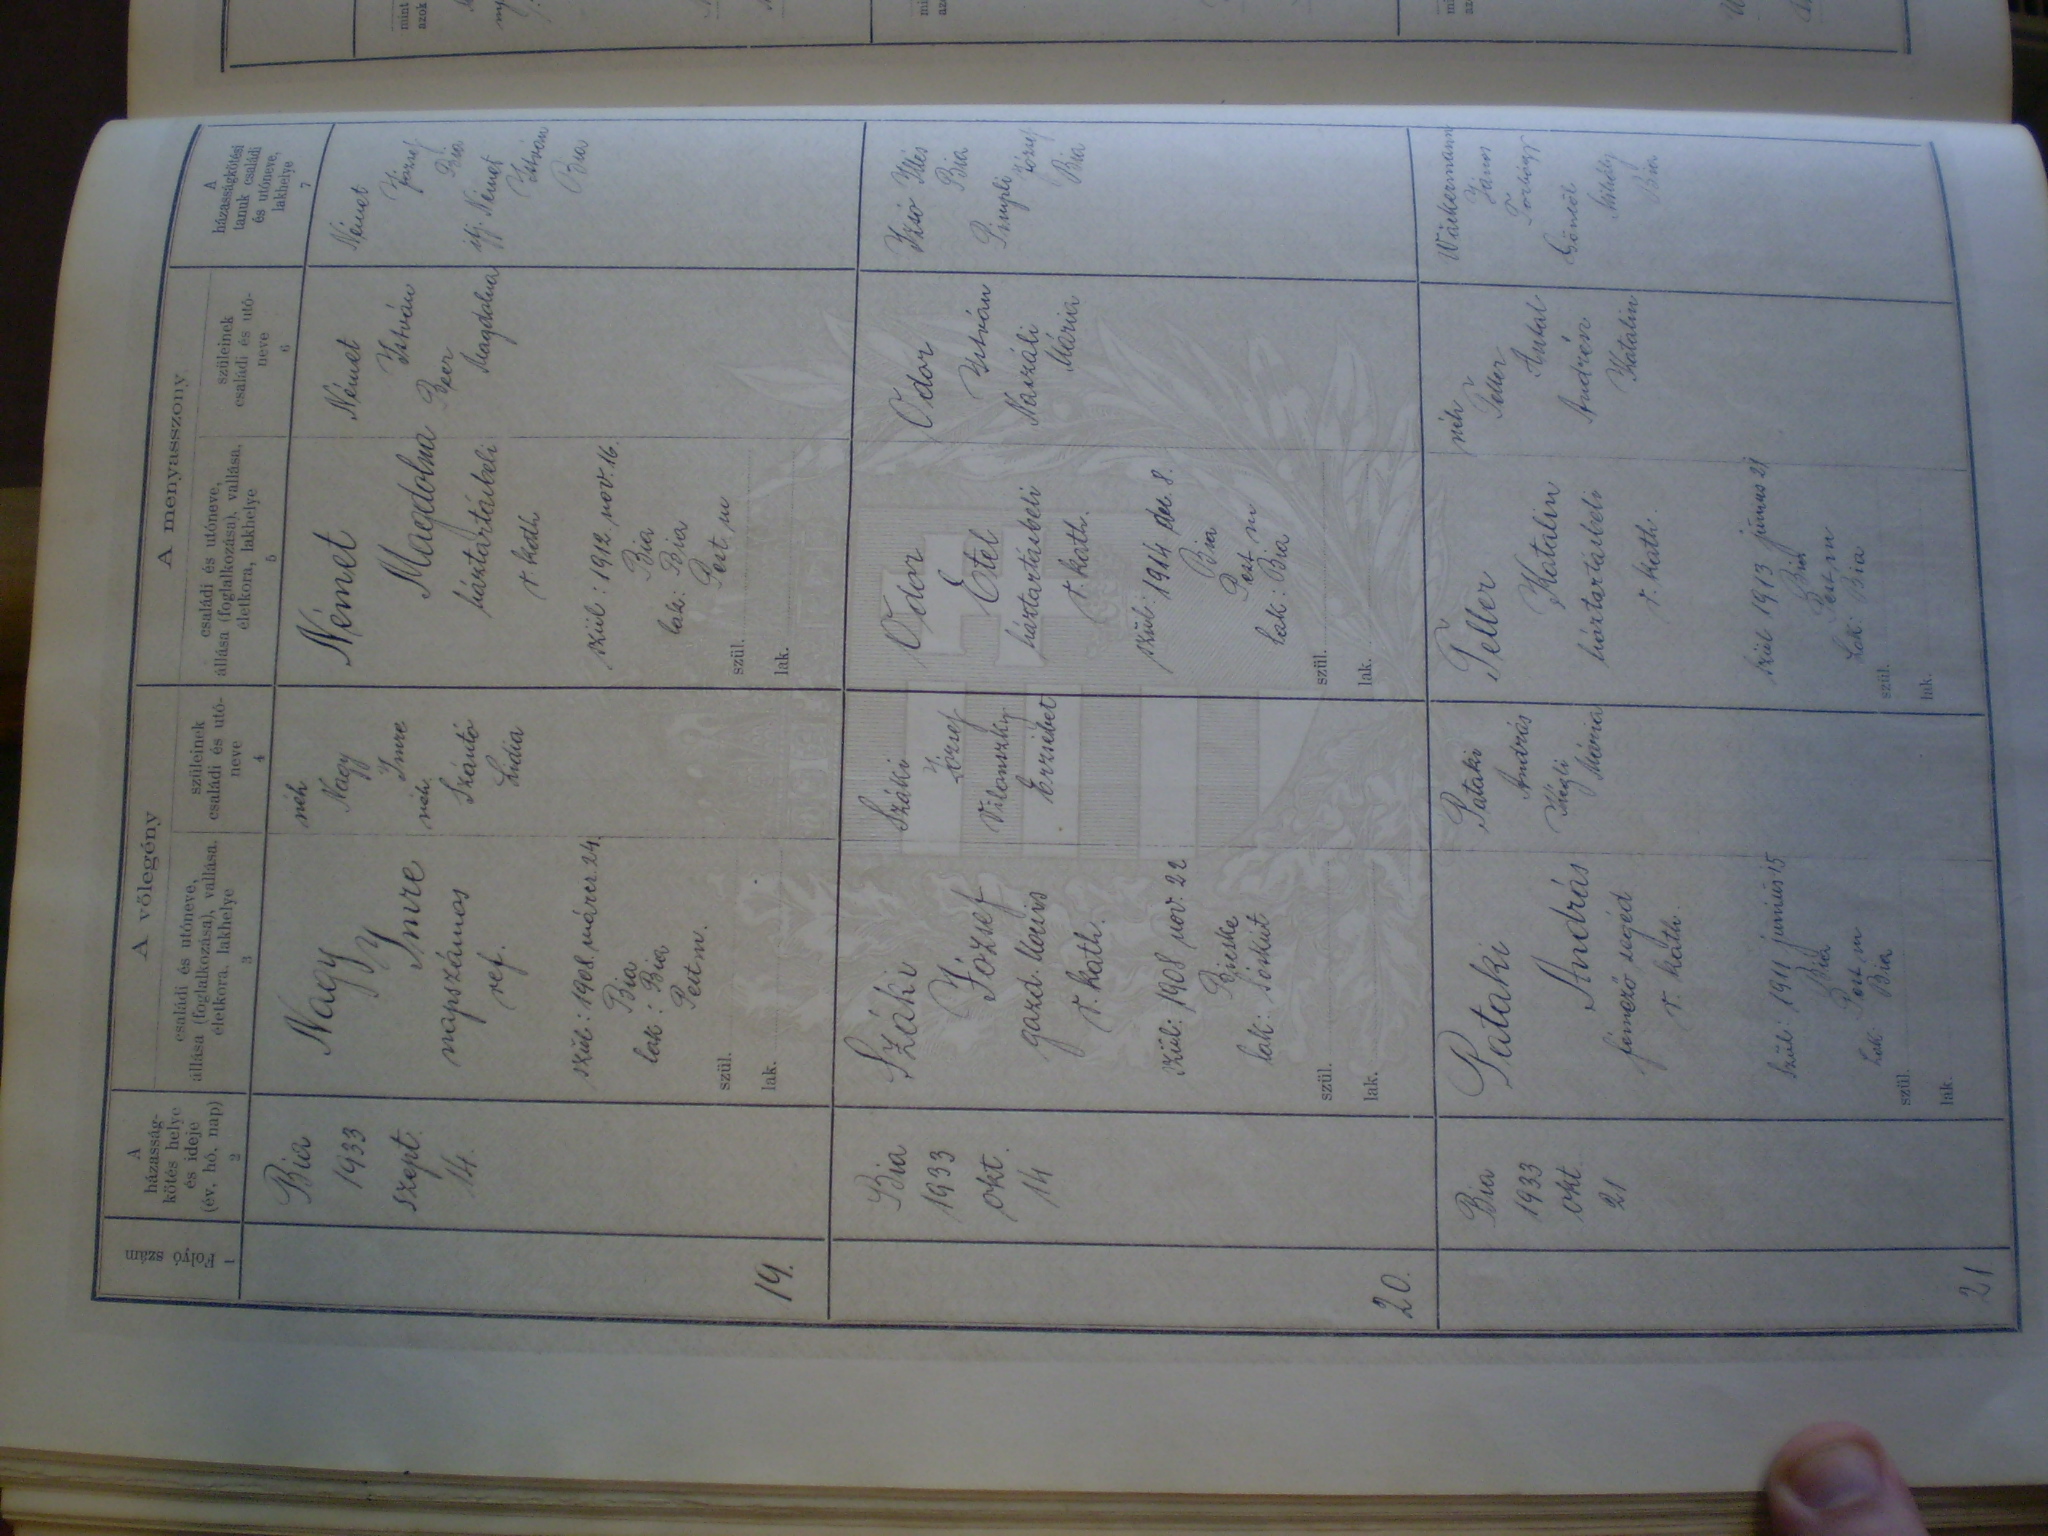 A
Folyó
szám
1
A
házasság-
kötés helye
és ideje
(év, hó, nap)
2
A vőlegény
családi és utóneve,
állása (foglalkozása), vallása,
életkora, lakhelye
3
szüleinek
családi és utó-
neve
4
A menyasszony
családi és utóneve,
állása (foglalkozása), vallása,
életkora, lakhelye
5
szüleinek
családi és utó-
neve
6
A
házasságkötési
tanuk családi
és utóneve,
lakhelye
7
19.
Bia
1933
szept.
14.
Nagy
Imre
napszámos
ref.
szül: 1908. márcz 24.
Bia
lak: Bia
Pest m.
szül.
lak.
néh
Nagy
Imre
néh.
Szántó
Lidia
Német
Magdolna
háztartásbeli
r. kath
szül: 1912. nov. 16.
Bia
lak: Bia
Pest, m
szül.
lak.
Német
István
Beer
Magdolna
Német
József
Bia
ifj. Német
István
Bia
20.
Bia
1933
okt.
14
Száki
József
gazd.
r. kath.
szül: 1908 nov. 22
Bicske
lak: Sóskut
szül.
lak.
Száki
József
Vilonszky
Erzsébet
Odor
Etel
háztartásbeli
r. kath.
szül: 1914 dec. 8.
Bia
Pest m
lak: Bia
szül.
lak.
Odor
István
Navráli
Mária
Izsó Illés
Bia
Pimpli
József
Bia
21
Bia
1933
okt
21
Pataki
András
fémező segéd
r. kath.
szül: 1911 junius 15
Bia
Pest m
Lak: Bia
szül.
lak.
Pataki
András
Kiegli
Mária
Teller
Katalin
háztartásbeli
r. kath.
szül 1913 junius 21
Bia
Pest m
Lak: Bia
szül.
lak.
néh
Teller
Antal
Andrész
Katalin
Wackermann
János
Torbágy
Göntöl
Bia
mint
azok